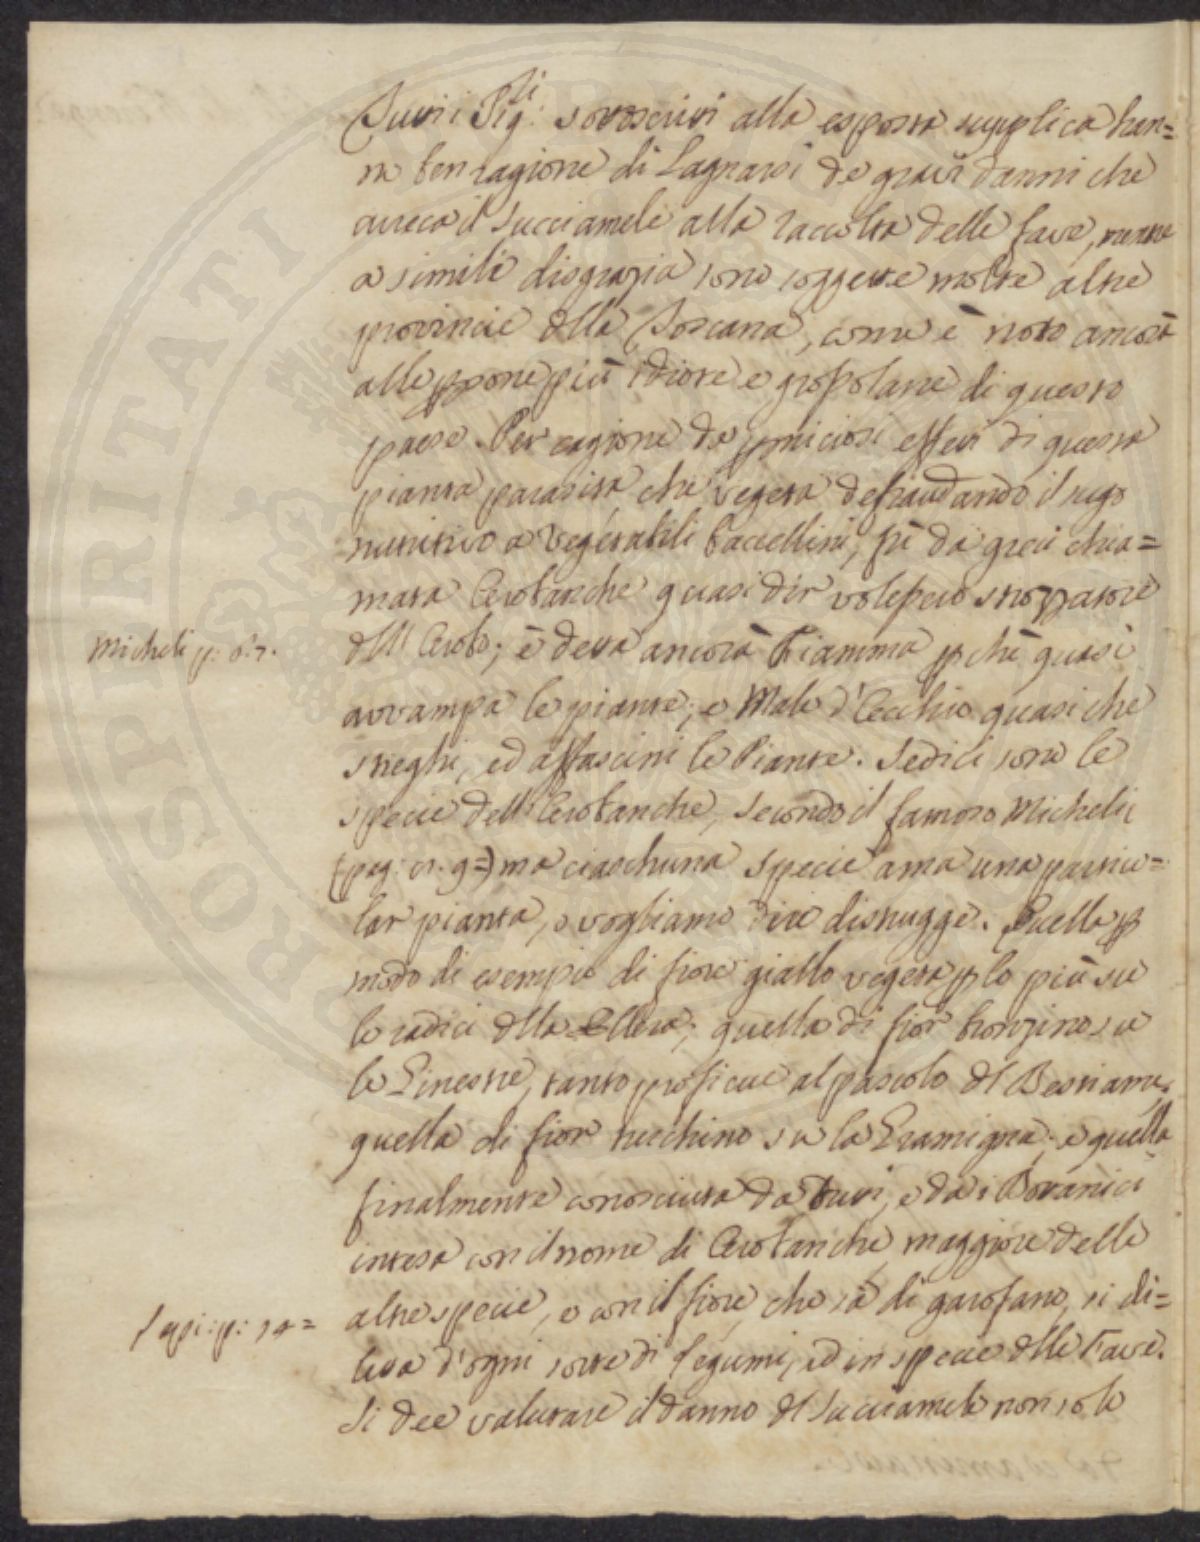 Tutti i Sig:ri sottoscritti alla esposta supplica han=
no ben ragione di lagnarsi de gravi danni che
arreca il Succiamele alla raccolta delle fave, mentre
a simile disgrazia sono soggette molte altre
provincie della Toscana, come è noto ancora
alle persone più idiote e popolane di questo
paese. Per cagione de perniciosi effetti di questa
pianta parasita che vegeta defraudando il sugo
nutritivo a vegetabili baccellini, fù da greci chia=
mata Orobanche quasi dir volessero strozzatore
dell'Orobo; è detta ancora Fiamma perche quasi
Micheli p: 67.
avvampa le piante; e Male d'Occhio quasi che
streghi, ed affascini le Piante. Sedici sono le
specie dell'Orobanche, secondo il famoso Micheli
(pag: cit. 9=) ma ciaschuna specie ama una particu=
lar pianta, o vogliamo dire distrugge. Quella per
modo di esempio di fiore giallo vegeta per lo più su
le radici della Ellera; quella di fior bronzino su
le Ginestre, tanto proficue al pascolo del Bestiame,
quella di fior turchino su la Gramigna; e quella
finalmente conosciuta da tutti, e da i Botanici
intesa con il nome di Orobanche maggiore delle
altre specie, e con il fiore, che sà di garofano, si di=
p: 14=
letta d'ogni sorte di legumi, ed in specie delle Fave.
Si dee valutare il danno del Succiamele non solo